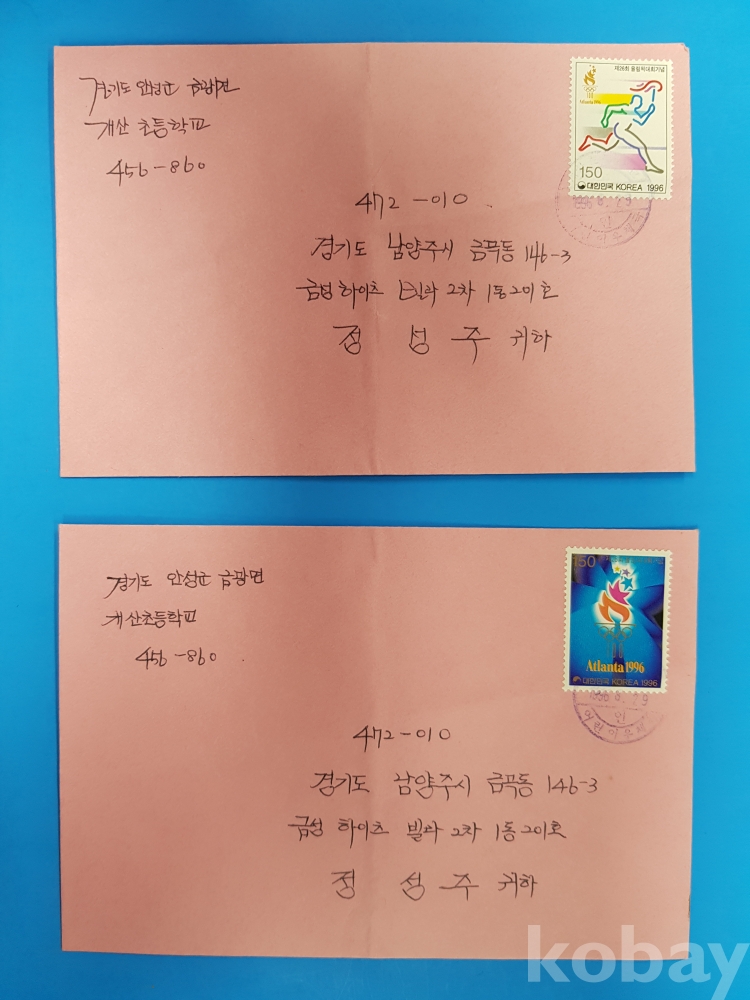 경기도 안성군 금광면
개산 초등학교
456-860
제26회 올림픽대회기념
Atlanta 1996
150
대한민국 KOREA 1996
1996. 8. 29
인
472-010
경기도 남양주시 금곡동 146-3
금성 하이츠 빌라 2차 1동 201호
정 성 주 귀하
경기도 안성군 금광면
개산초등학교
456-860
150
Atlanta 1996
대한민국 KOREA 1996
인
어린이우체국
472-010
경기도 남양주시 금곡동 146-3
금성 하이츠 빌라 2차 1동 201호
정 성 주 귀하
kobay